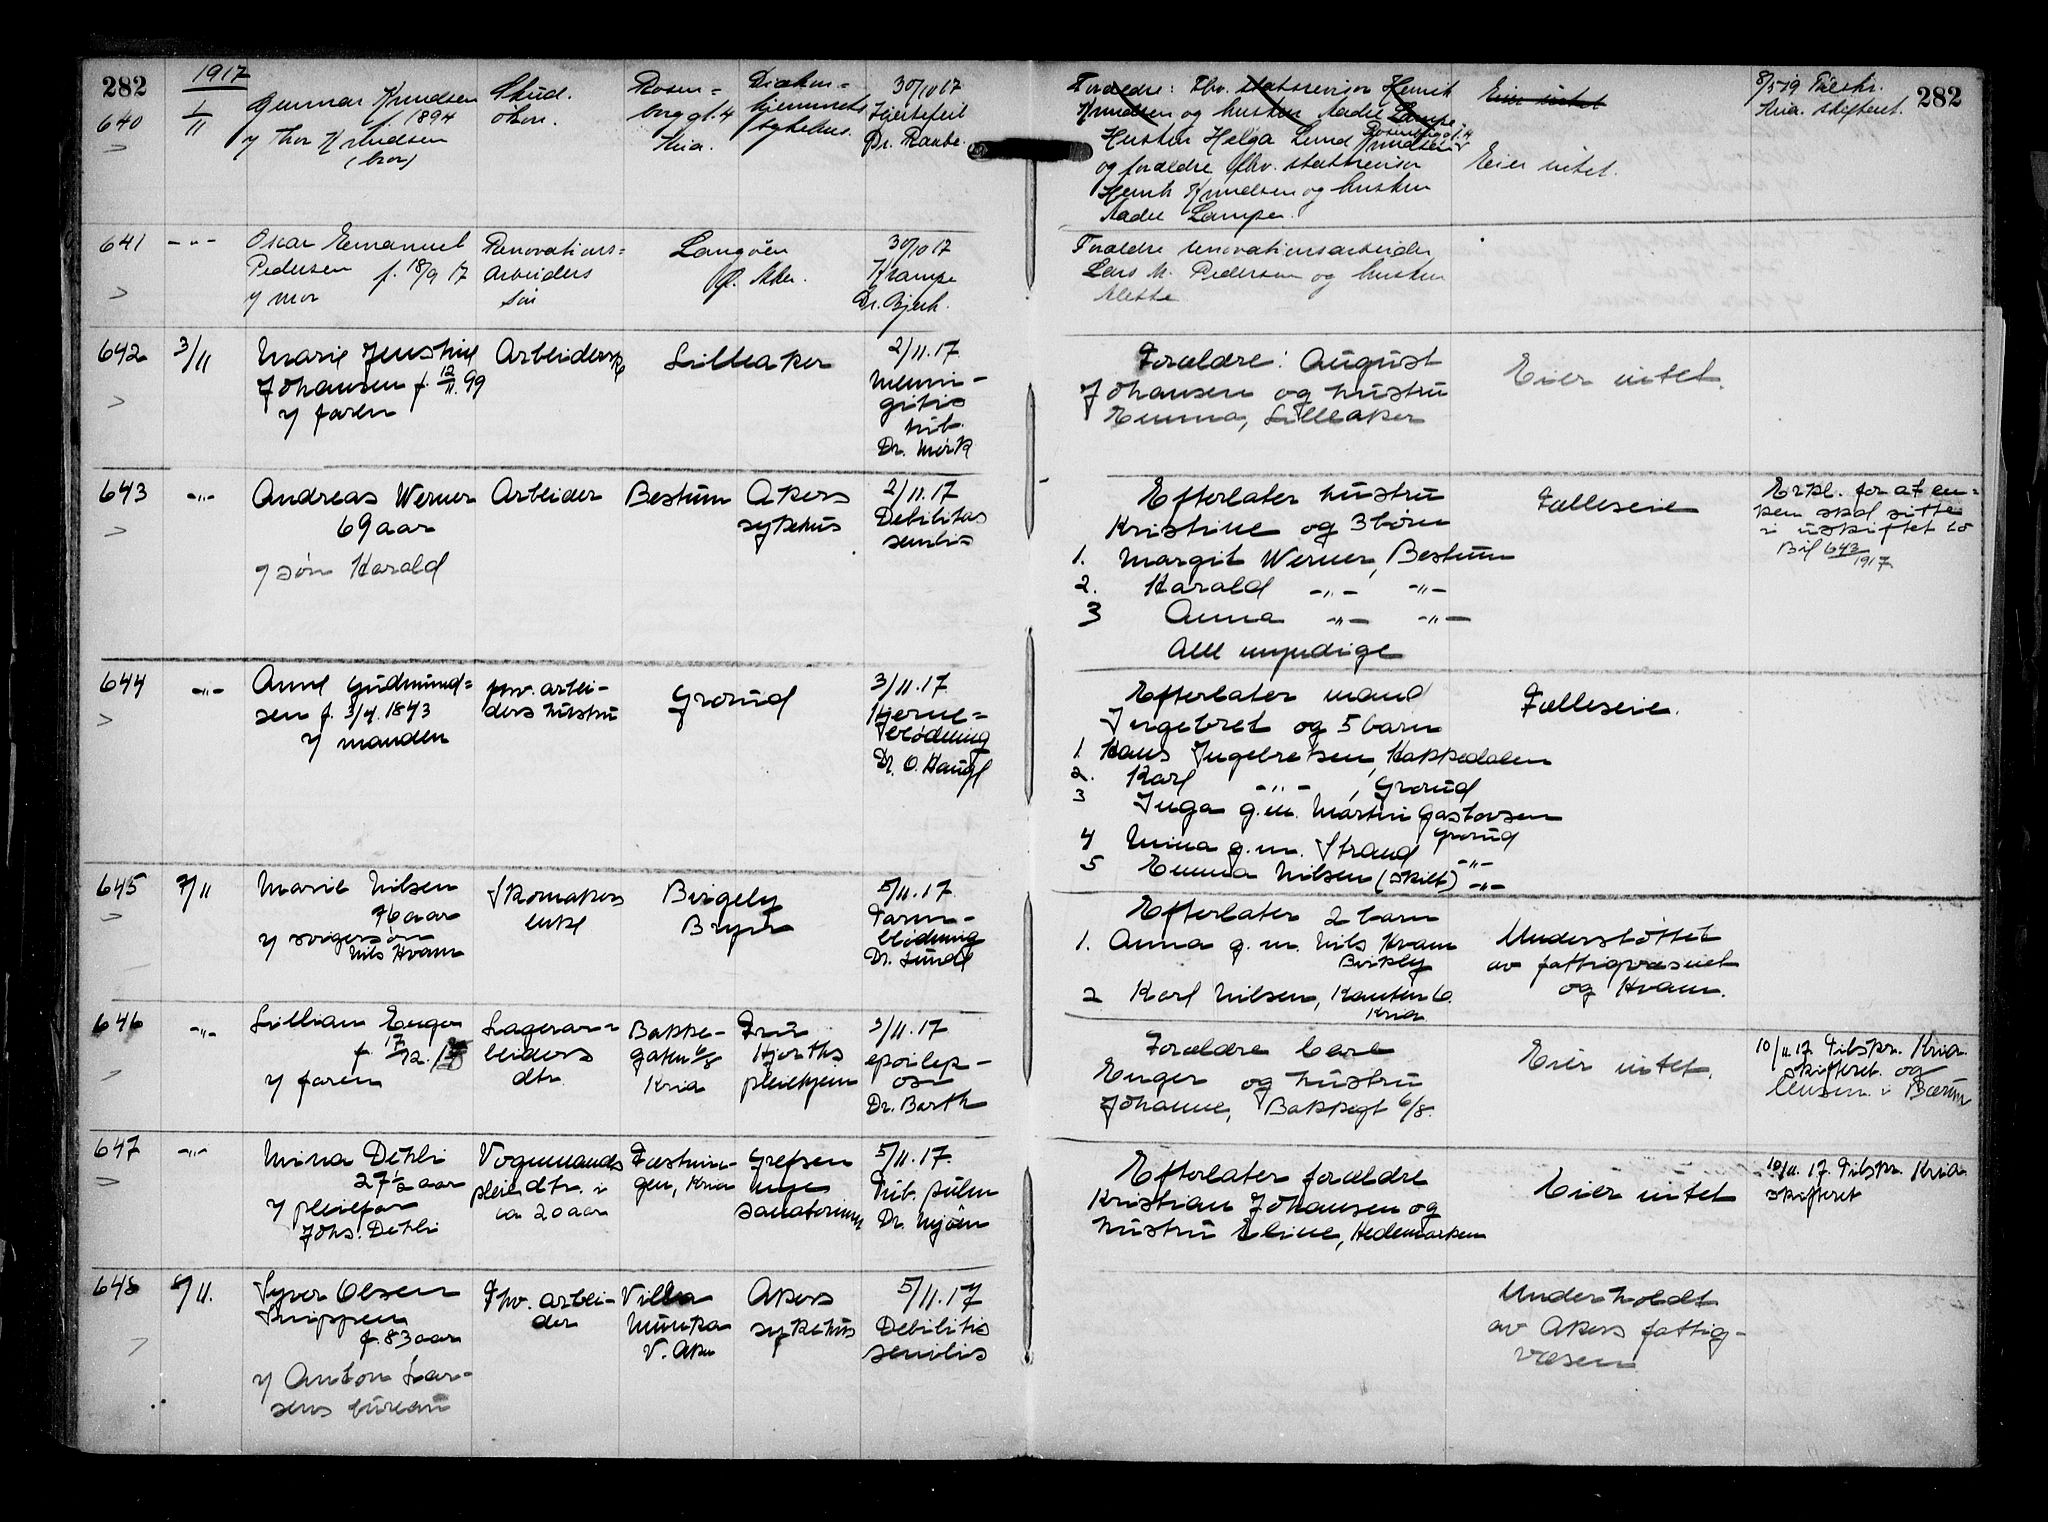 282
1917
640
1/11
Gunnar Knudsen
f. 1894
v/ Thor Knudsen
(bror)
Stud.
økon.
Rosen=
borggt. 4
Kria.
Diakon=
hjemmets
sykehus.
30/10 17
Hjertefeil
Dr. Raabe.
Forældre: Fhv. statsrevisor Henrik
Knudsen og hustru Aadel Lampe
Hustru Helga Lund Knudsen Rosenborggt. 4
og forældre fhv. statsrevisor
Henrik Knudsen og hustru
Aadel Lampe.
Eier intet
Eier intet.
8/5 19 Tilskr.
Kria. skifteret.
282
641
-"-
Oskar Emanuel
Pedersen f. 18/9 17
v/ mor
Renovations=
arbeiders
søn
Langøen
Ø. Aker.
30/10 17
Krampe
Dr. Bjerk.
Forældre renovationsarbeider
Lars M. Pedersen og hustru
Alette
642
3/11
Marie Jenshil
Johansen f. 12/11.99
v/ faren
Arbeiderske
Lilleaker
2/11.17
Menin-
gitis
tub.
Dr. Mørk
Forældre: August
Johansen og hustru
Emma, Lilleaker
Eier intet.
643
-"-
Andreas Werner
69 aar
v/ søn Harald
Arbeider
Bestum
Akers
sykehus
2/11.17
Debilitas
senilis
Efterlater hustru
Kristine og 3 børn
1. Margit Werner, Bestum
2. Harald -"- -"-
3 Anna -"- -"-
Alle umyndige
Fælleseie
Erkl. for at en=
ken skal sitte
i uskiftet bo
Bil 643/1917
644
-"-
Anne Gudmund=
sen f. 3/4.1843
v/ manden
fhv. arbei-
ders hustru
Grorud
3/11.17
Hjerne=
blødning
Dr. O. Haugl
Efterlater mand
Ingebret og 5 barn
1. Hans Ingebretsen, Hakkedalen
2. Karl -"-, Grorud
3 Inga g.m. Martin Gustavsen
Grorud
4 Mina g.m. Strand -"-
5 Emma Nilsen (skilt) -"-
Fælleseie.
645
7/11
Marie Nilsen
76 aar
v/ svigersøn
Nils Kvam
Skomakers
enke
Birgely
Bryn
5/11.17
Tarm-
blødning
Dr. Lunde
Efterlater 2 barn
1. Anna g.m. Nils Kvam
Birkely
2 Karl Nilsen, Kanten 6.
Kria
Understøttet
av fattigvæsnet
og Kvam.
646
-"-
Lillian Enger
f. 17/12.13
v/ faren
Lagerar=
beiders
dtr.
Bakke-
gaten 6/8
Kria
Fru
Hjorths
pleiehjem
3/11.17
epilep-
osi
Dr. Barth
Forældre Carl
Enger og hustru
Johanne, Bakkegt 6/8.
Eier intet.
10/11 17. Tilskr. Kria.
skifteret. og
lensm. i Bærum
647
-"-
Mina Dehli
27½ aar
v/ pleiefar
Johs. Dehli
Vognmands
pleiedtr. i
ca 20 aar
Fæstnin-
gen, Kria
Grefsen
nye
sanatorium
5/11.17.
Tub. pulm
Dr. Mjøen
Efterlater forældre
Kristian Johansen og
hustru Eline, Hedemarken
Eier intet
10/11. 17. Tilskr. Kria
skifteret
648
8/11.
Syver Olsen
Knippen
f. 83 aar
v/ Anton Lar-
sens bureau
Fhv. arbei-
der
Villa
Munka
V. Aker
Akers
sykehus
5/11.17
Debilitas
senilis
Underholdt
av Akers fattig-
væsen